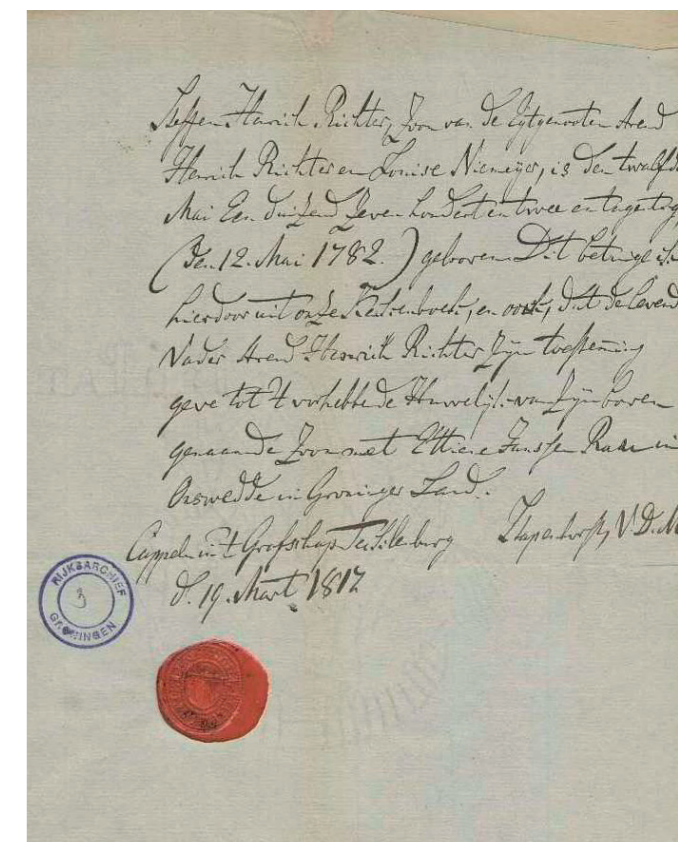 Steffen Henrich Richter, Zoon van de Egtgenoten Arend
Henrich Richter en Louise Niemeijer, is den twalfd
Mai Een duizend zeven hondert en twee en tagetog
(den 12. Mai 1782.) geboren. Dit betuige ik
hierdoor uit onze Kerkenboek, en ook, dat de levend
Vader Arend Henrich Richter zijn toestemming
geve tot 't vorhebbende Huwelijk van zijn boven
genaamde Zoon met Janssen in
Onswedde in Groninger Land.
Cappeln in 't Grafschap Tecklenburg V. D. M
d. 19. Mart 1812
RIJKSARCHIEF
3
GRONINGEN